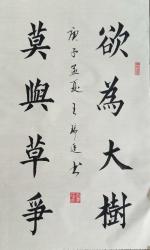 欲為大樹
莫與草爭
庚子孟夏王師廷書